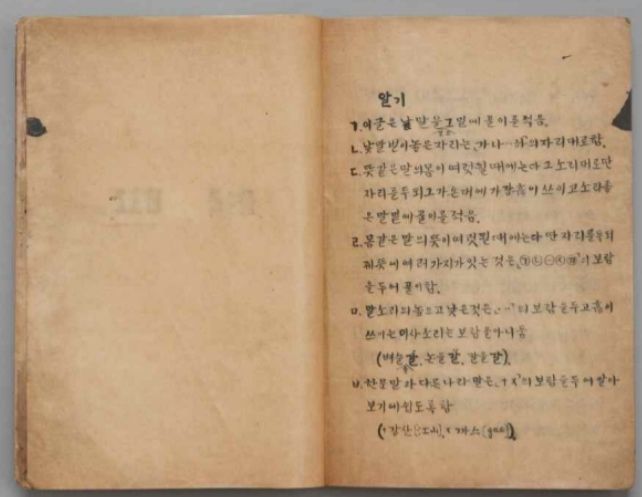 알기
ㄱ. 이 글은 낱말을 그 밑에 풀이를 적음.
ㄴ. 낱말 벌이놓은 자리는 '가나…하'의 자리대로 함.
ㄷ. 뜻 같은 말의 몸이 여럿 될 때에는 다 그 소리대로 만
자리를 두되 그 가운데에 가장 흠이 쓰이고 소리 좋
은 말 밑에 풀이를 적음.
ㄹ. 몸 같은 말의 뜻이 여럿 될 때에는 다 딴 자리를 두되
뜻에 여러 가지가 잇는 것은 ㉠㉡㊀㊁의 보람
을 두어 풀이함.
ㅁ. 말소리의 높고 낮은 것은 '의 보람을 두고 흠이
쓰이는 소리는 보람을 아니둠
(벼슬갈, 논을갈, 갈을갈).
ㅂ. 한문말과 다른 나라 말은 '+×'의 보람을 두어 알아
보기에 쉽도록 함
(+강산, ×까스(gas)).